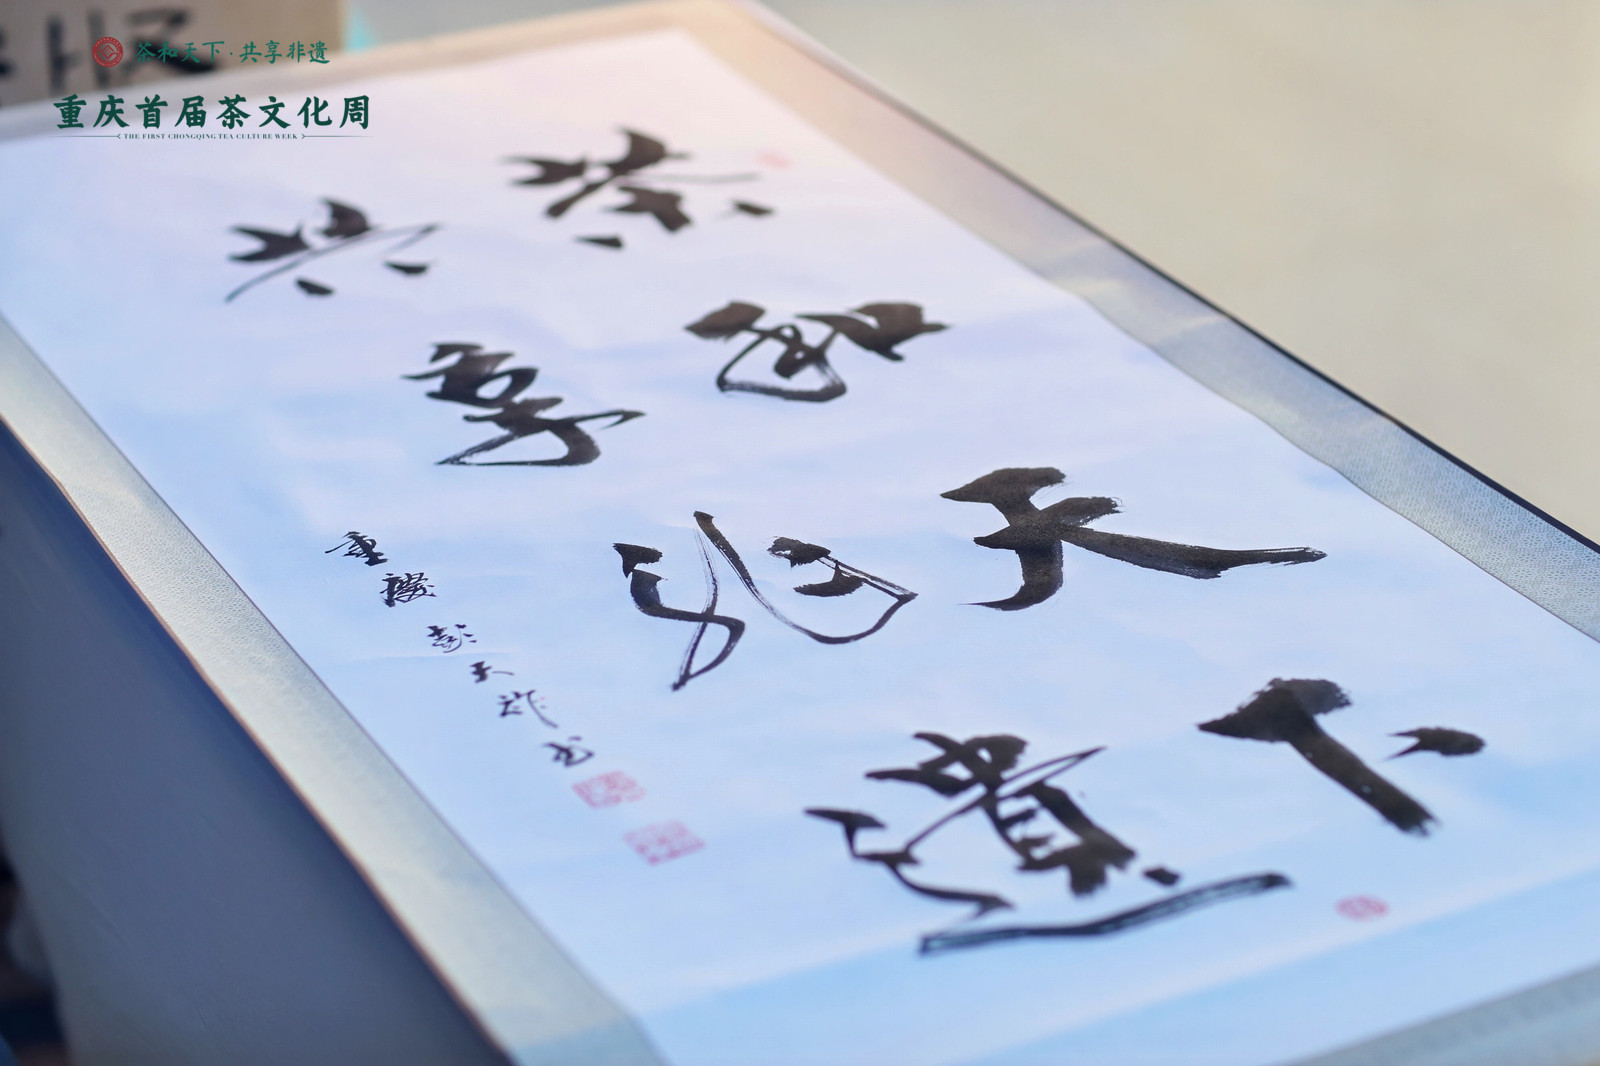 茶和天下·共享非遗
重庆首届茶文化周
THE FIRST CHONGQING TEA CULTURE WEEK
茶和天下
共享非遗
重庆彭天祚书